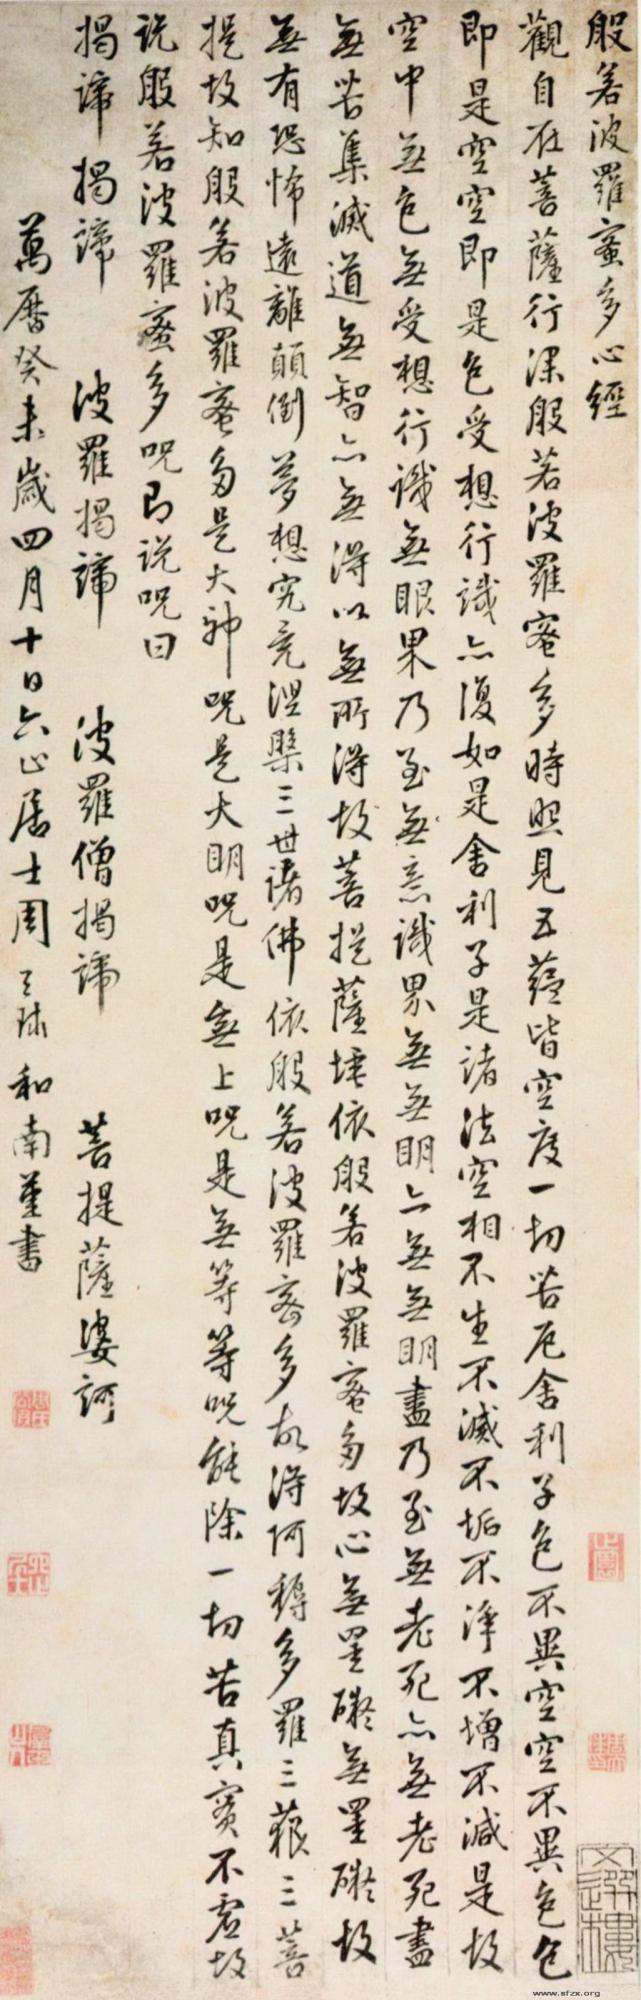 般若波羅蜜多心經
觀自在菩薩行深般若波羅蜜多時照見五蘊皆空度一切苦厄舍利子色不異空空不異色色
即是空空即是色受想行識亦復如是舍利子是諸法空相不生不滅不垢不淨不增不減是故
空中無色無受想行識無眼界乃至無意識界無無明亦無無明盡乃至無老死亦無老死盡
無苦集滅道無智亦無得以無所得故菩提薩埵依般若波羅蜜多故心無罣礙無罣礙故
無有恐怖遠離顛倒夢想究竟涅槃三世諸佛依般若波羅蜜多故得阿耨多羅三藐三菩
提故知般若波羅蜜多是大神呪是大明呪是無上呪是無等等呪能除一切苦真實不虛故
說般若波羅蜜多呪即說呪曰
揭諦揭諦 波羅揭諦 波羅僧揭諦 菩提薩婆訶
萬曆癸未歲四月十日六止居士周天球和南謹書
文選樓
www.sfzx.org